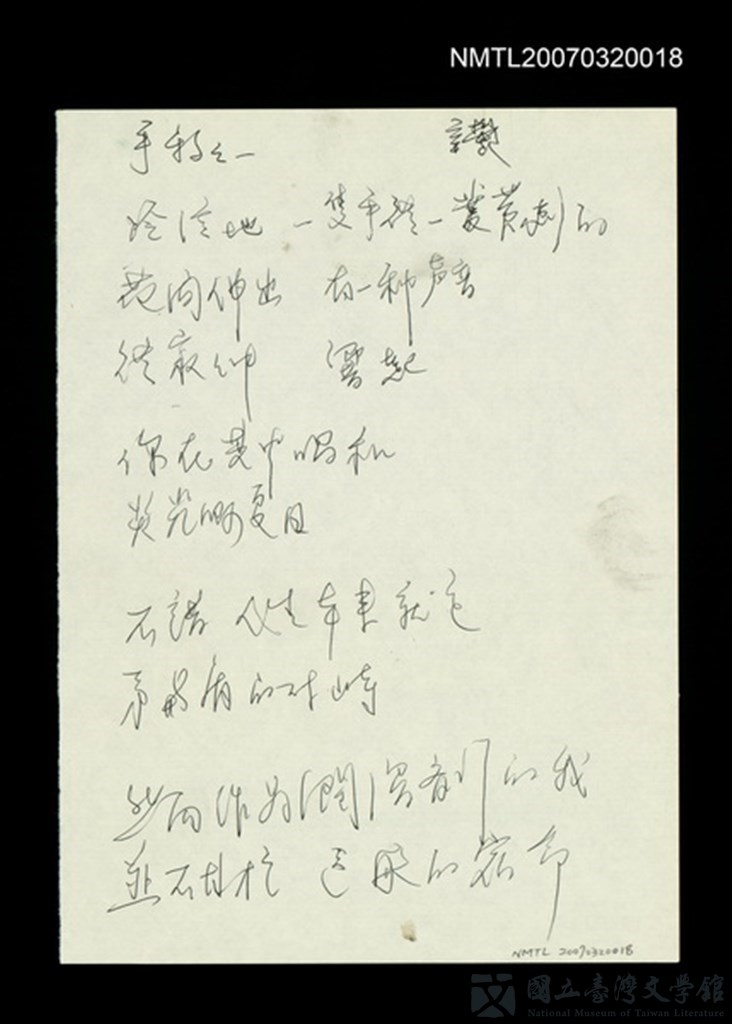 NMTL20070320018
手稿之一
冷冷地 一隻手從一叢黃 的
範間伸出 有一种声音
從 中 響起
你在其中唱和
熒光的夏日
不錯 人生本來就是
矛與盾的对峙
然而作為 的我
並不甘於 這般的宿命
NMTL 20070320018
國立臺灣文學館
National Museum of Taiwan Literature